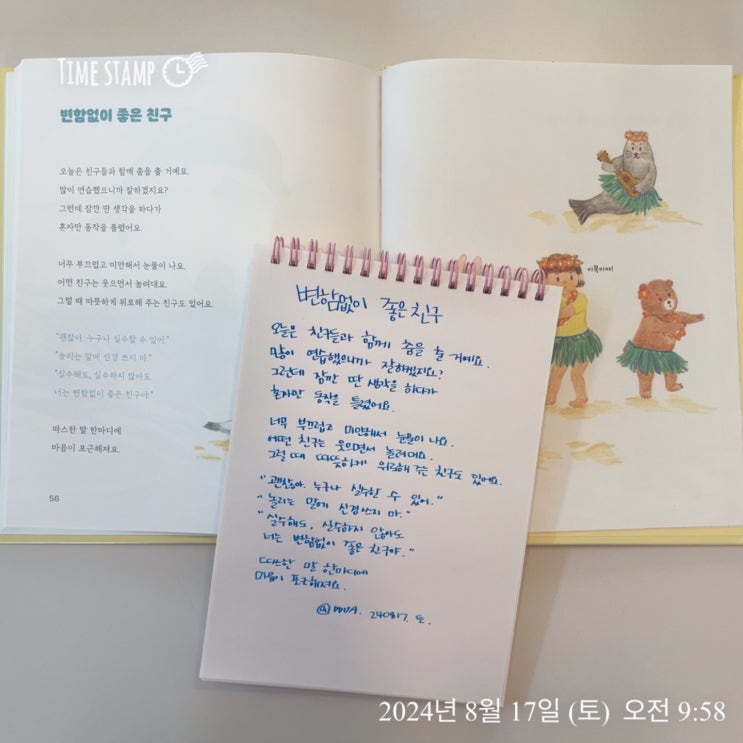 TIME STAMP
변함없이 좋은 친구
오늘은 친구들과 함께 춤을 출 거예요.
많이 연습했으니까 잘하겠지요?
그런데 잠깐 딴 생각을 하다가
혼자만 동작을 틀렸어요.
너무 부끄럽고 미안해서 눈물이 나요.
어떤 친구는 웃으면서 놀려대요.
그럴 때 따뜻하게 위로해 주는 친구도 있어요.
"괜찮아. 누구나 실수할 수 있어."
"놀리는 말에 신경 쓰지 마."
"실수해도, 실수하지 않아도
너는 변함없이 좋은 친구야."
따스한 말 한마디에
마음이 포근해져요.
56
이쪽이야!
변함없이 좋은 친구
오늘은 친구들과 함께 춤을 출 거예요.
많이 연습했으니까 잘하겠지요?
그런데 잠깐 딴 생각을 하다가
혼자만 동작을 틀렸어요.
너무 부끄럽고 미안해서 눈물이 나요.
어떤 친구는 웃으면서 놀려대요.
그럴 때 따뜻하게 위로해 주는 친구도 있어요.
"괜찮아. 누구나 실수할 수 있어."
"놀리는 말에 신경쓰지 마."
"실수해도, 실수하지 않아도
너는 변함없이 좋은 친구야."
따스한 말 한마디에
마음이 포근해져요.
240817. 토.
2024년 8월 17일 (토) 오전 9:58